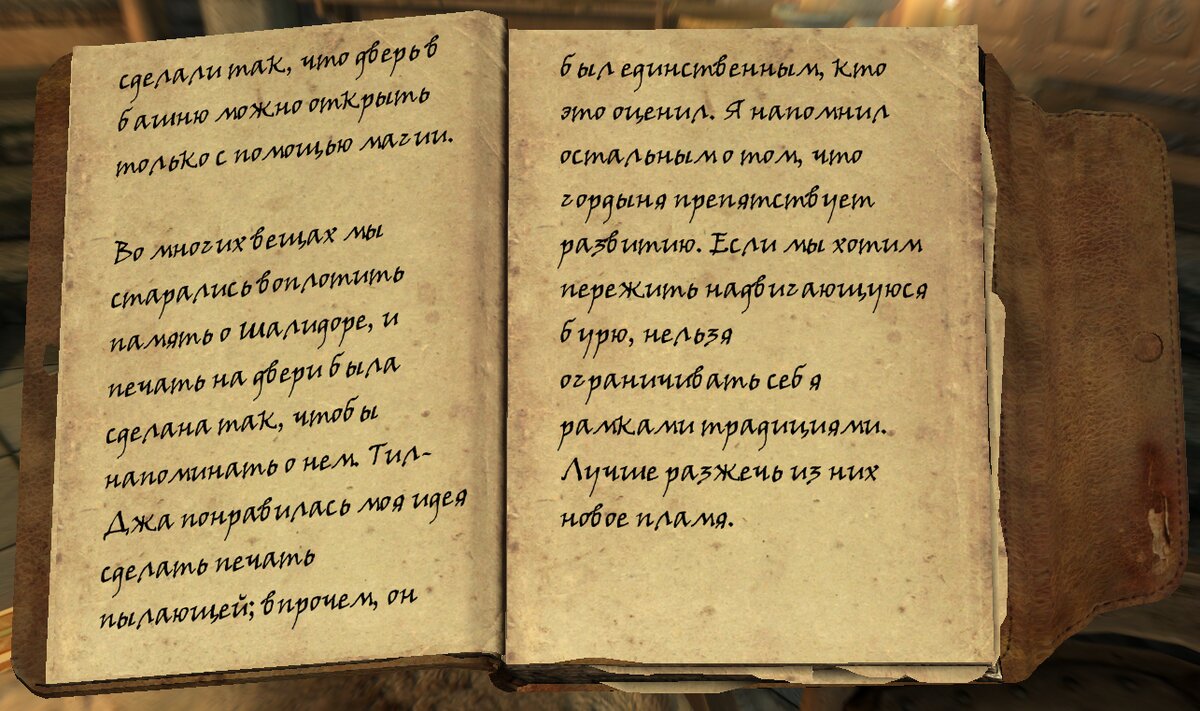 сделали так, что дверь в
башню можно открыть
только с помощью магии.
Во многих вещах мы
старались воплотить
память о Шалидоре, и
печать на двери была
сделана так, чтобы
напоминать о нем. Тил-
Джа понравилась моя идея
сделать печать
пылающей; впрочем, он
был единственным, кто
это оценил. Я напомнил
остальным о том, что
гордыня препятствует
развитию. Если мы хотим
пережить надвигающуюся
бурю, нельзя
ограничивать себя
рамками традициями.
Лучше разжечь из них
новое пламя.